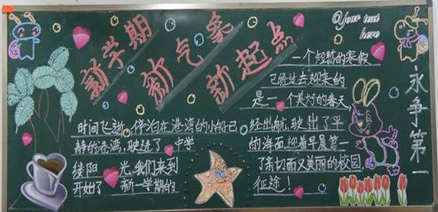 新学期
新气象
新起点
Your text
here
一个短暂的寒假
已经过去迎来的
是一个美好的春天
永争第一
时间飞逝，停泊在港湾的小船已
经出航，驶出了平
静的港湾，驶进了
的海面迎着早晨第一
缕阳光，我们来到
了亲切而又美丽的校园
开始了新一学期的
征途！